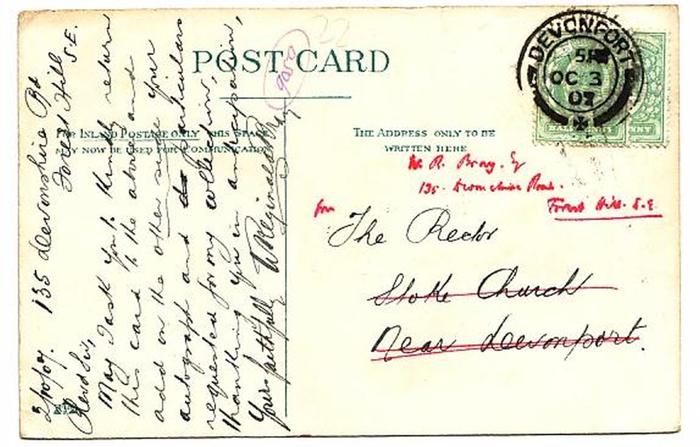 POST CARD
FOR INLAND POSTAGE ONLY THIS SPACE
MAY NOW BE USED FOR COMMUNICATION
THE ADDRESS ONLY TO BE
WRITTEN HERE
DEVONPORT
OC 3
07
HALFPENNY
NNY
9050
2/10/07. 135 Devonshire Rd
Forest Hill
S.E.
Revd Sir,
May I ask you to kindly return
this card to the above, and
add on the other side your
autograph and particulars
requested for my collection,
thanking you in anticipation,
Yours faithfully W Reginald Bray
W. R. Bray. Esq
135. Devonshire Road.
Forest Hill. S.E
from
The Rector
Stoke Church
Near Devonport.